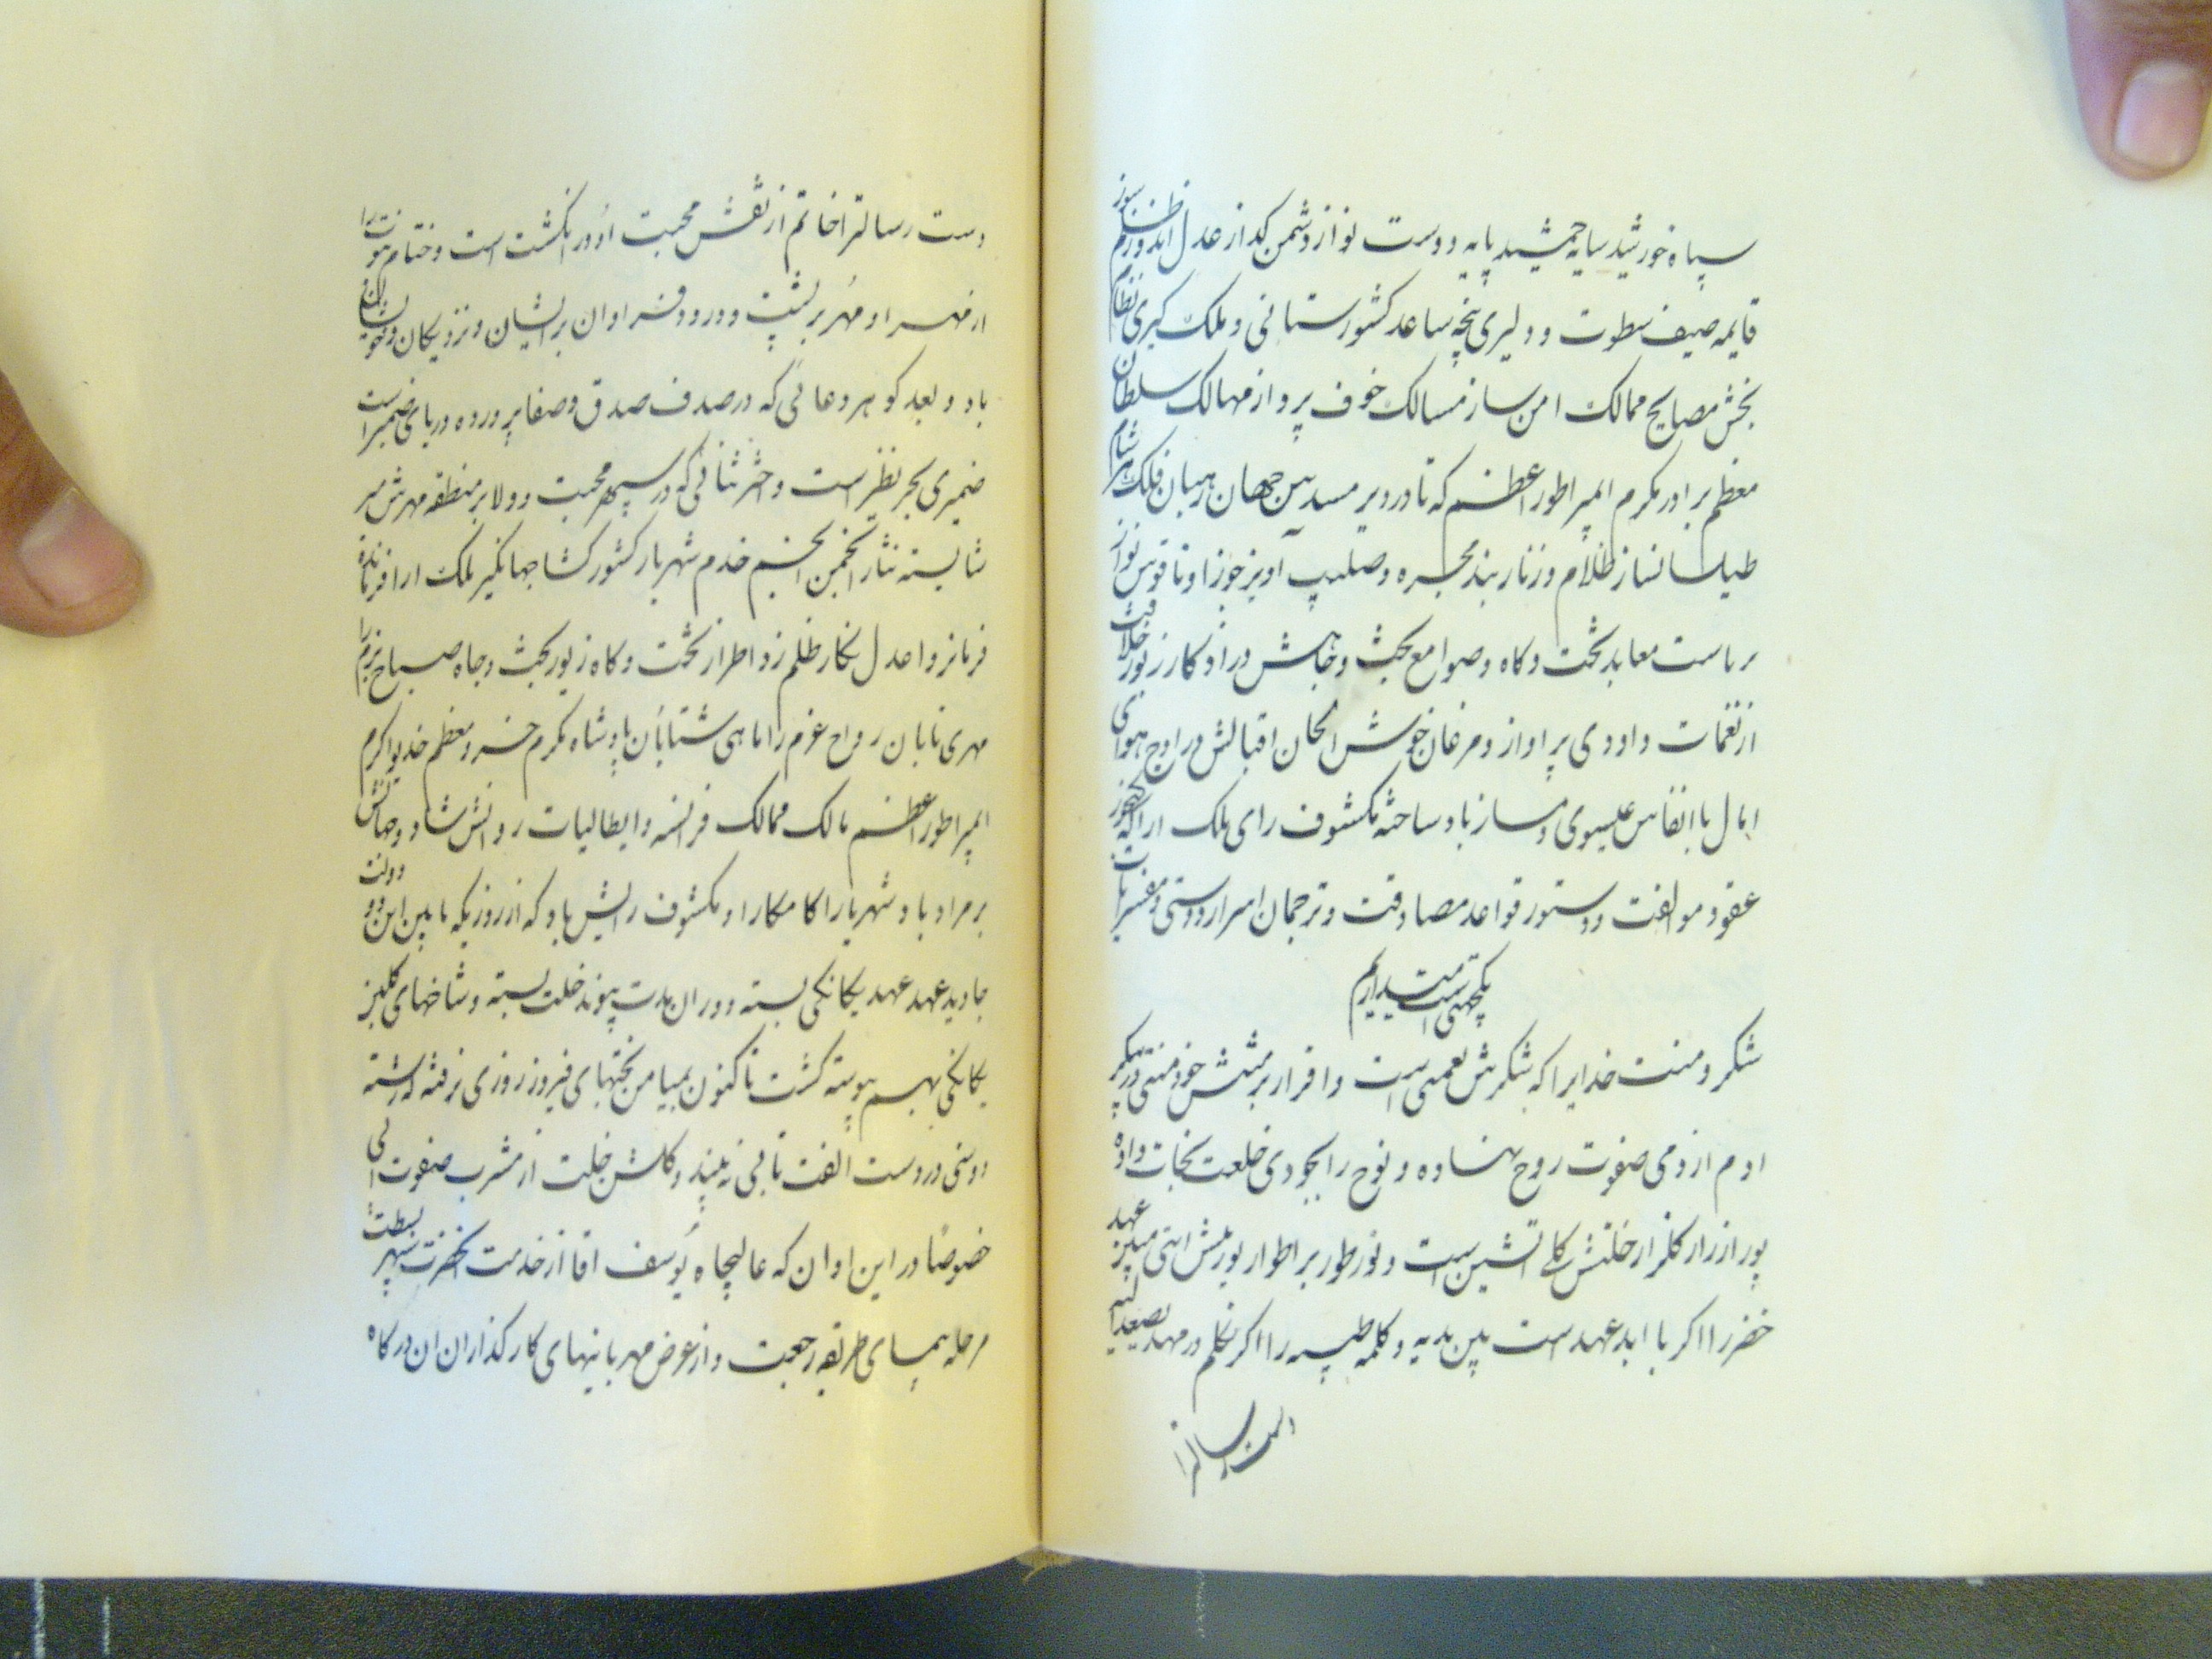 سپاه خورشید سایه جمشید پایه دوست نواز دشمن کداز عدل اندوز ظلم سوز
قایمه صیف سطوت و دلیری پنجه ساعد کشورستانی و ملک کیری نظام
بخش مصالح ممالک امن ساز مسالک خوف پرداز مهالک سلطان
معظم برادر مکرم امپراطور اعظم که تا در دیر مسدس جهان رهبان فلک هر شام
طیلسانساز ظلام و زنار بند مجره و صلیب آویز جوزا و ناقوس نواز
ریاست معابد تخت و کاه و صوامع بخت و جاهش در اذکار زبور خلافت
از نغمات داودی پر اواز و مرغان خوش الحان اقبالش در اوج هوای
امال با انفاس عیسوی دمساز باد ساخته مکشوف رای ملک ارا که
عقود موالفت و دستور قواعد مصادقت و ترجمان اسرار دوستی و مفسر
شکر و منت خدایرا که شکرش نعمتی است و اقرار بر منتش خود منتی در پیکر
ادم از دمی صفوت روح نهاده و نوح را بجودی خلعت نجات داده
پور ازر از کلزار خلتش کلی اتشین است و نور طور بر اطوار نورش ایتی مبین عهد
خضر را اکر با ابد عهد است بدیه و کلمه طیبه را اکر تکلم در مهد
دست رسالترا
دست رسالترا خاتم از نقش محبت او در انکشت است و ختام نبوت را
از مهر او مهر بر پشت و درود فراوان بر ایشان و نزدیکان و خویشان
باد و بعد کوهر دعائی که در صدف صدق و صفا پرورده دریای ضمیر است
ضمیری بحر نظیر است و اختر ثنائی که در سپهر محبت و ولا بر منطقه مهرش سیر
شایسته نثار انجمن انجم خدم شهریار کشور کشا جهانکیر ملک ارا فرمانده
فرمانروا عدل نکار ظلم زدا طراز تخت و کاه زیور بخت و جاه صباح بزم را
مهری تابان رواح عزم را ماهی شتابان پادشاه مکرم خسرو معظم خدیو اکرم
امپراطور اعظم مالک ممالک فرانسه و ایطالیا که روانش شاد و جهانش
بر مراد باد شهریارا کامکارا مکشوف رایش باد که از روزیکه مابین این دو دولت
جاوید عهد عهد یکانکی بسته و دران مدت پیوند خلت بسته و شاخهای کلبن
یکانکی بهم پیوسته کشت تا کنون بمیامن بختهای فیروز روزی نرفته که رشته
دوستی در دست الفت تابی نه بیند و کلشن خلت از مشرب صفوت ابی
خصوصا در این اوان که عالیجاه یوسف اقا از خدمت انحضرت سپهر بسطت
مرحله پیمای طریقه رجعت و از عرض مهربانیهای کارکذاران ان درکاه